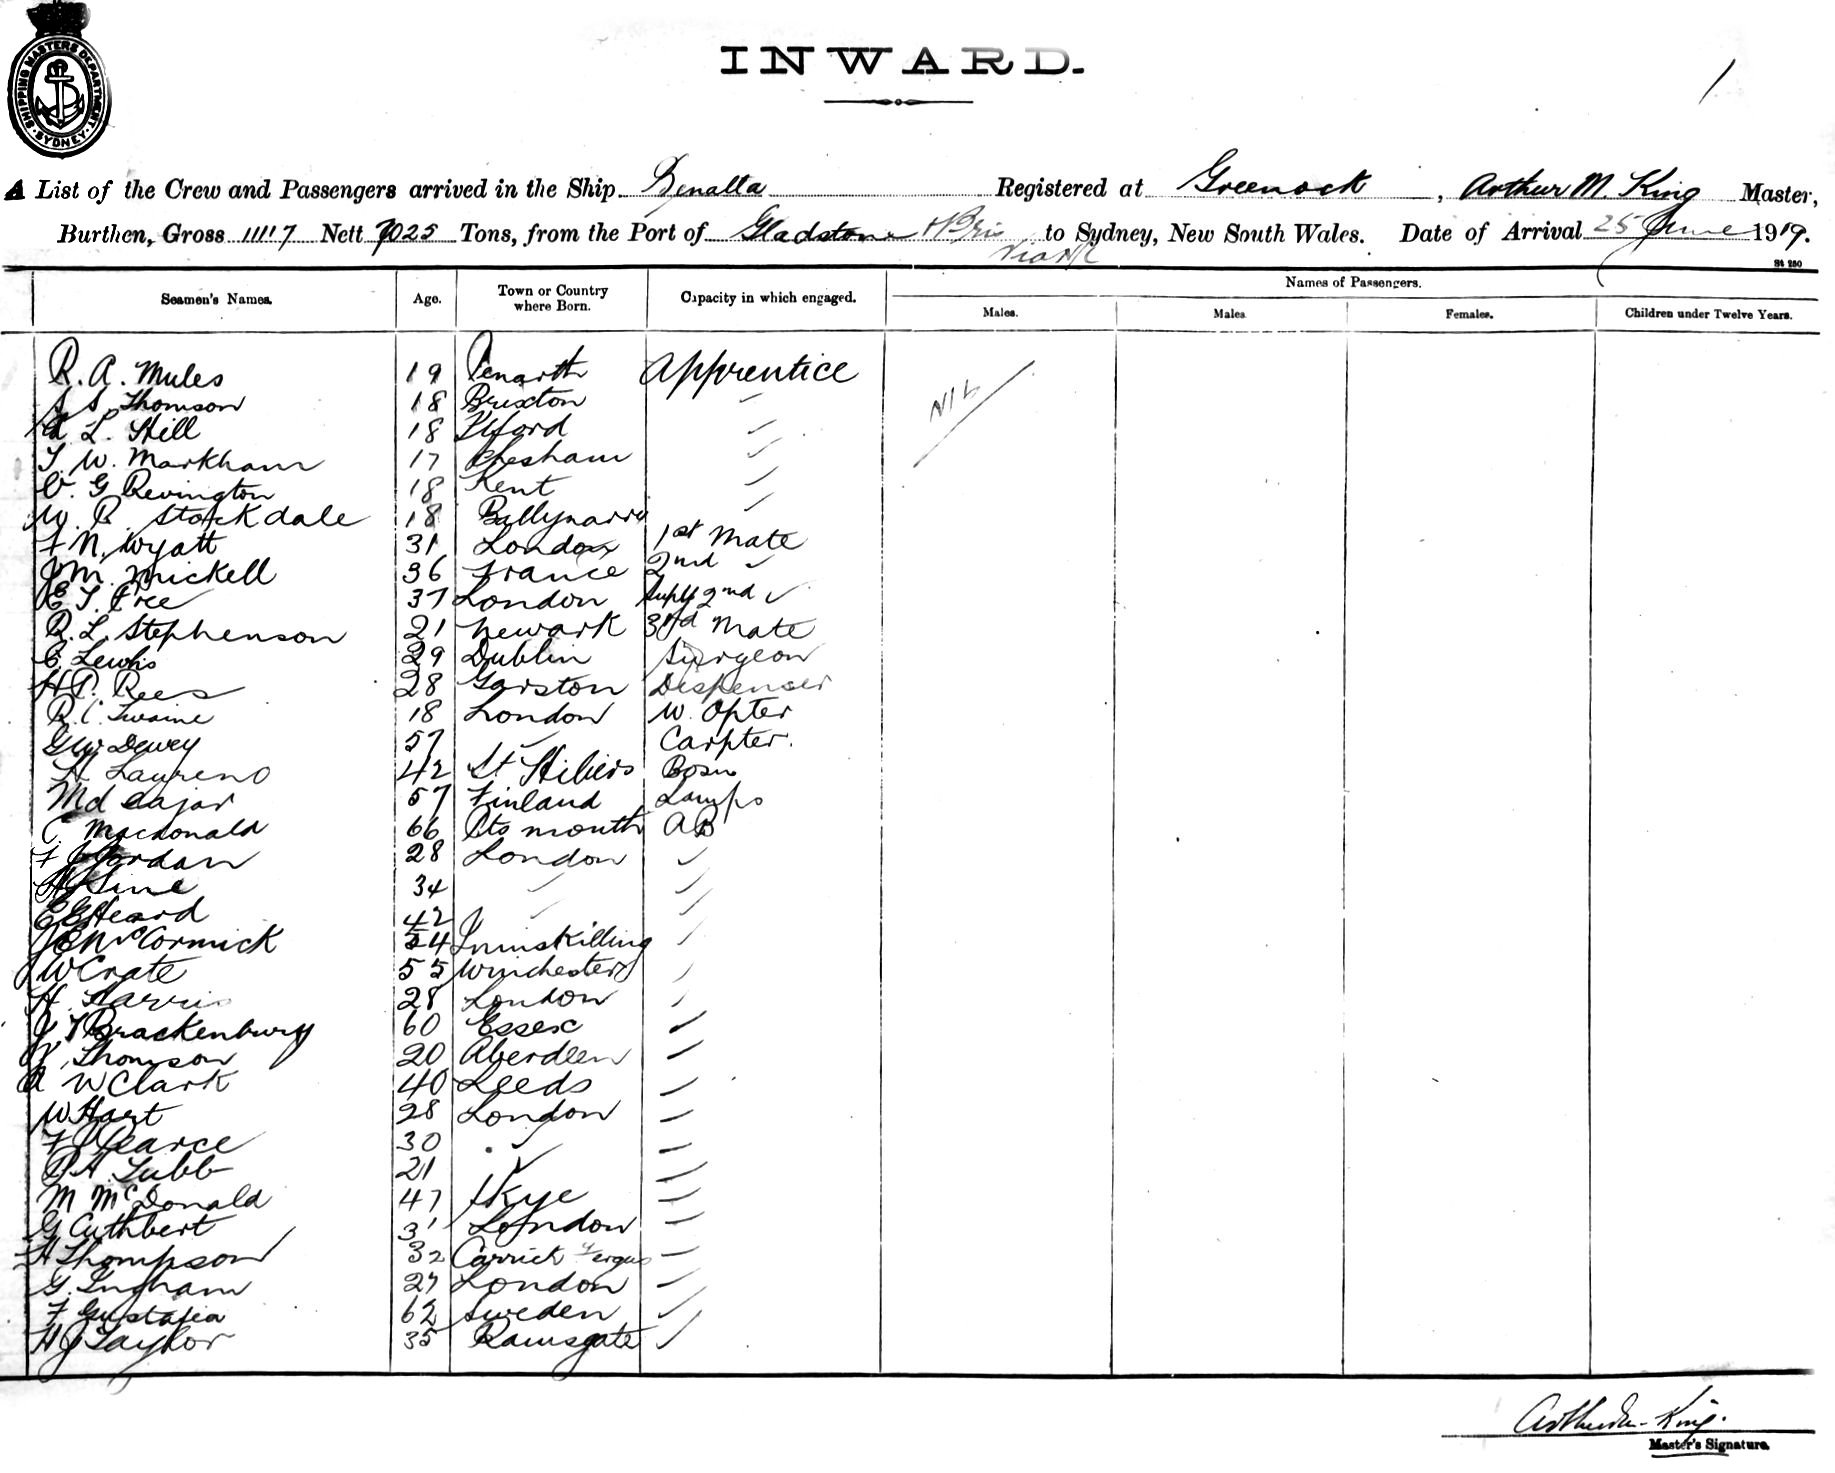 SHIPPING MASTERS DEPARTMENT SYDNEY
INWARD.
1
A List of the Crew and Passengers arrived in the Ship Benalla Registered at Greenock, Arthur M. King Master,
Burthen, Gross 11117 Nett 7025 Tons, from the Port of Gladstone + Bris to Sydney, New South Wales. Date of Arrival 25 June 1919.
St 250
Seamen's Names. Age. Town or Country where Born. Capacity in which engaged. Names of Passengers.
Males. Males Females. Children under Twelve Years.
R. A. Mules 19 Penarth Apprentice NIL
S. Thomson 18 Brixton "
L. Hill 18 Ilford "
T W. Markham 17 Chesham "
V. G Revington 18 Kent "
W. B Stockdale 18
F N. Wyatt 31 London 1st Mate
J M. Mickell 36 France 2nd "
E T. Free 37 London Suply 2nd "
R. L. Stephenson 21 Newark 3rd Mate
C. Lewis 29 Dublin Surgeon
H P. Rees 28 Garston Dispenser
R. C. Swaine 18 London W. Opter
G W Dewey 57 " Carpter.
H Laureno 42 St Hiliers Bosn
Md Eajar 57 Finland Lamps
C Macdonald 66 Pts mouth AB
F J Jordan 28 London "
H J Sine 34 " "
E E Heard 42 " "
J E McCormick 54 Inniskilling "
J W Crate 55 Winchester "
H. Harris 28 London "
J T Brackenbury 60 Essex "
Thomson 20 Aberdeen "
A W Clark 40 Leeds "
W Hart 28 London "
F J Pearce 30 " "
P A. Tubb 21 " "
M McDonald 47 Skye "
G Cuthbert 31 London "
H Thompson 32 Carrick Fergus "
G. Ingham 27 London "
F Gustafia 62 Sweden "
H J Taylor 35 Ramsgate "
Arthur M. King.
Master's Signature.